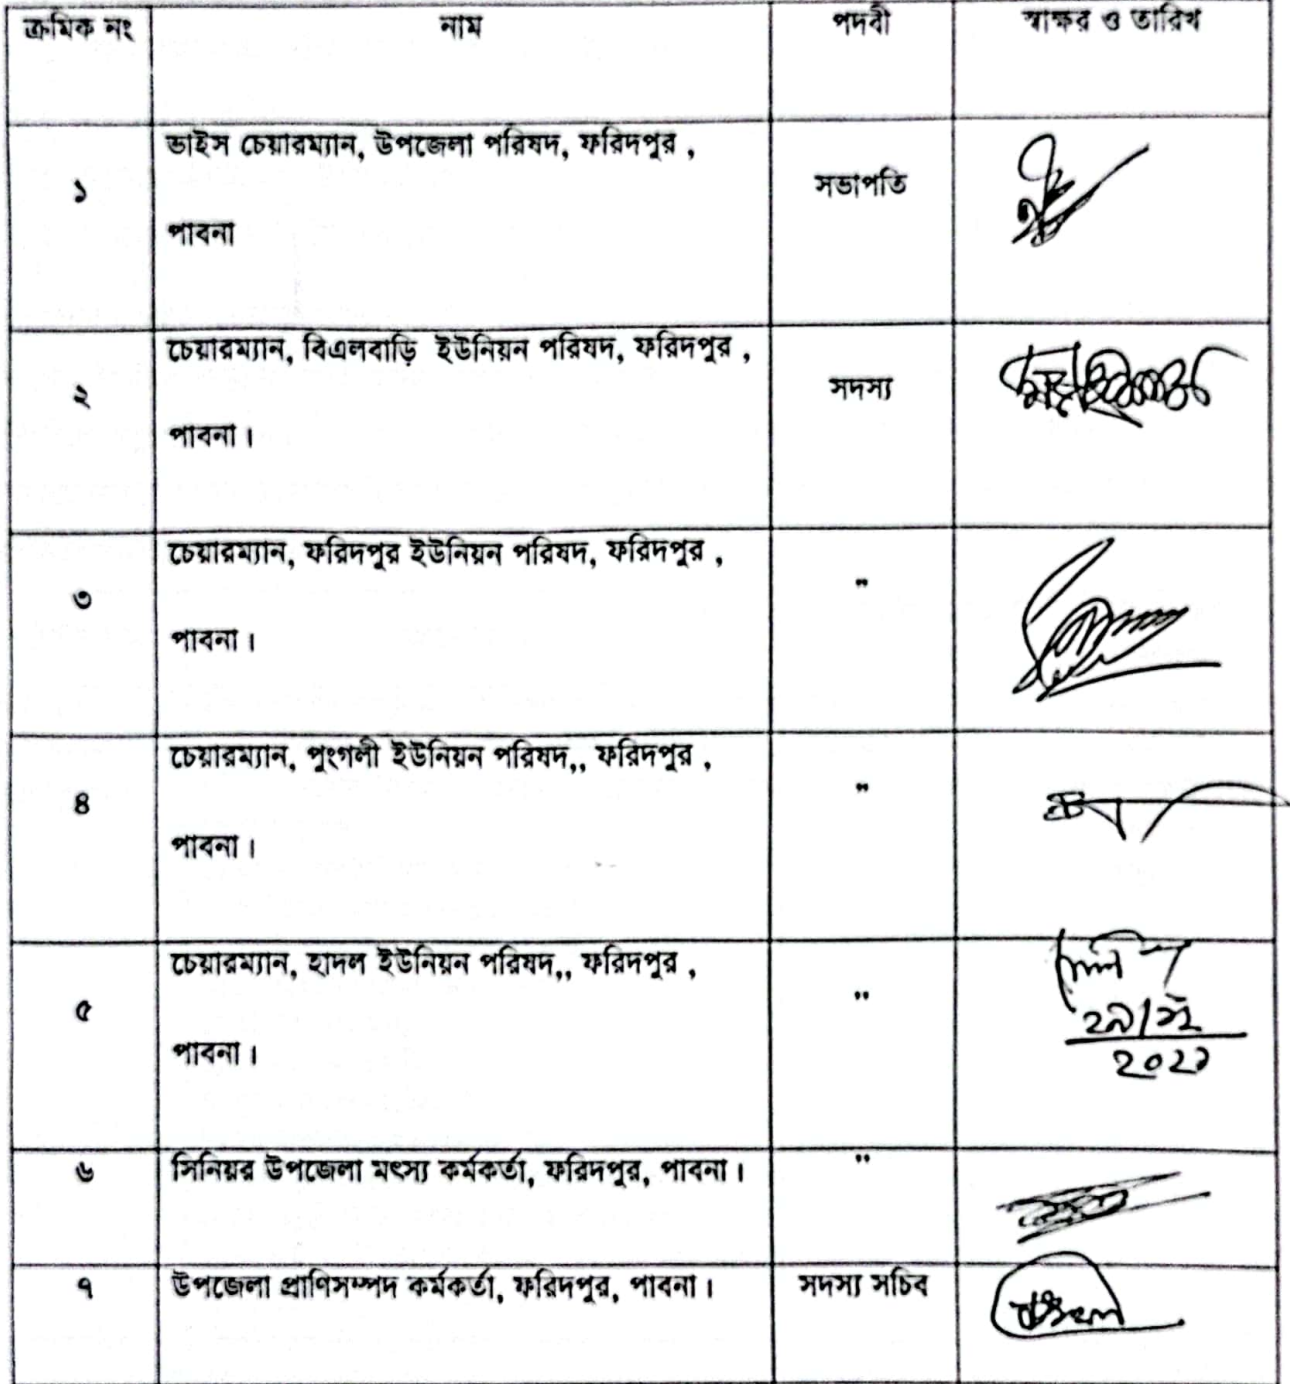 ক্রমিক নং নাম পদবী স্বাক্ষর ও তারিখ
১ ভাইস চেয়ারম্যান, উপজেলা পরিষদ, ফরিদপুর , সভাপতি
পাবনা
২ চেয়ারম্যান, বিএলবাড়ি ইউনিয়ন পরিষদ, ফরিদপুর , সদস্য
পাবনা।
৩ চেয়ারম্যান, ফরিদপুর ইউনিয়ন পরিষদ, ফরিদপুর , "
পাবনা।
৪ চেয়ারম্যান, পুংগলী ইউনিয়ন পরিষদ,, ফরিদপুর , "
পাবনা।
৫ চেয়ারম্যান, হাদল ইউনিয়ন পরিষদ,, ফরিদপুর , "
পাবনা।
২০২১
৬ সিনিয়র উপজেলা মৎস্য কর্মকর্তা, ফরিদপুর, পাবনা। "
৭ উপজেলা প্রাণিসম্পদ কর্মকর্তা, ফরিদপুর, পাবনা। সদস্য সচিব